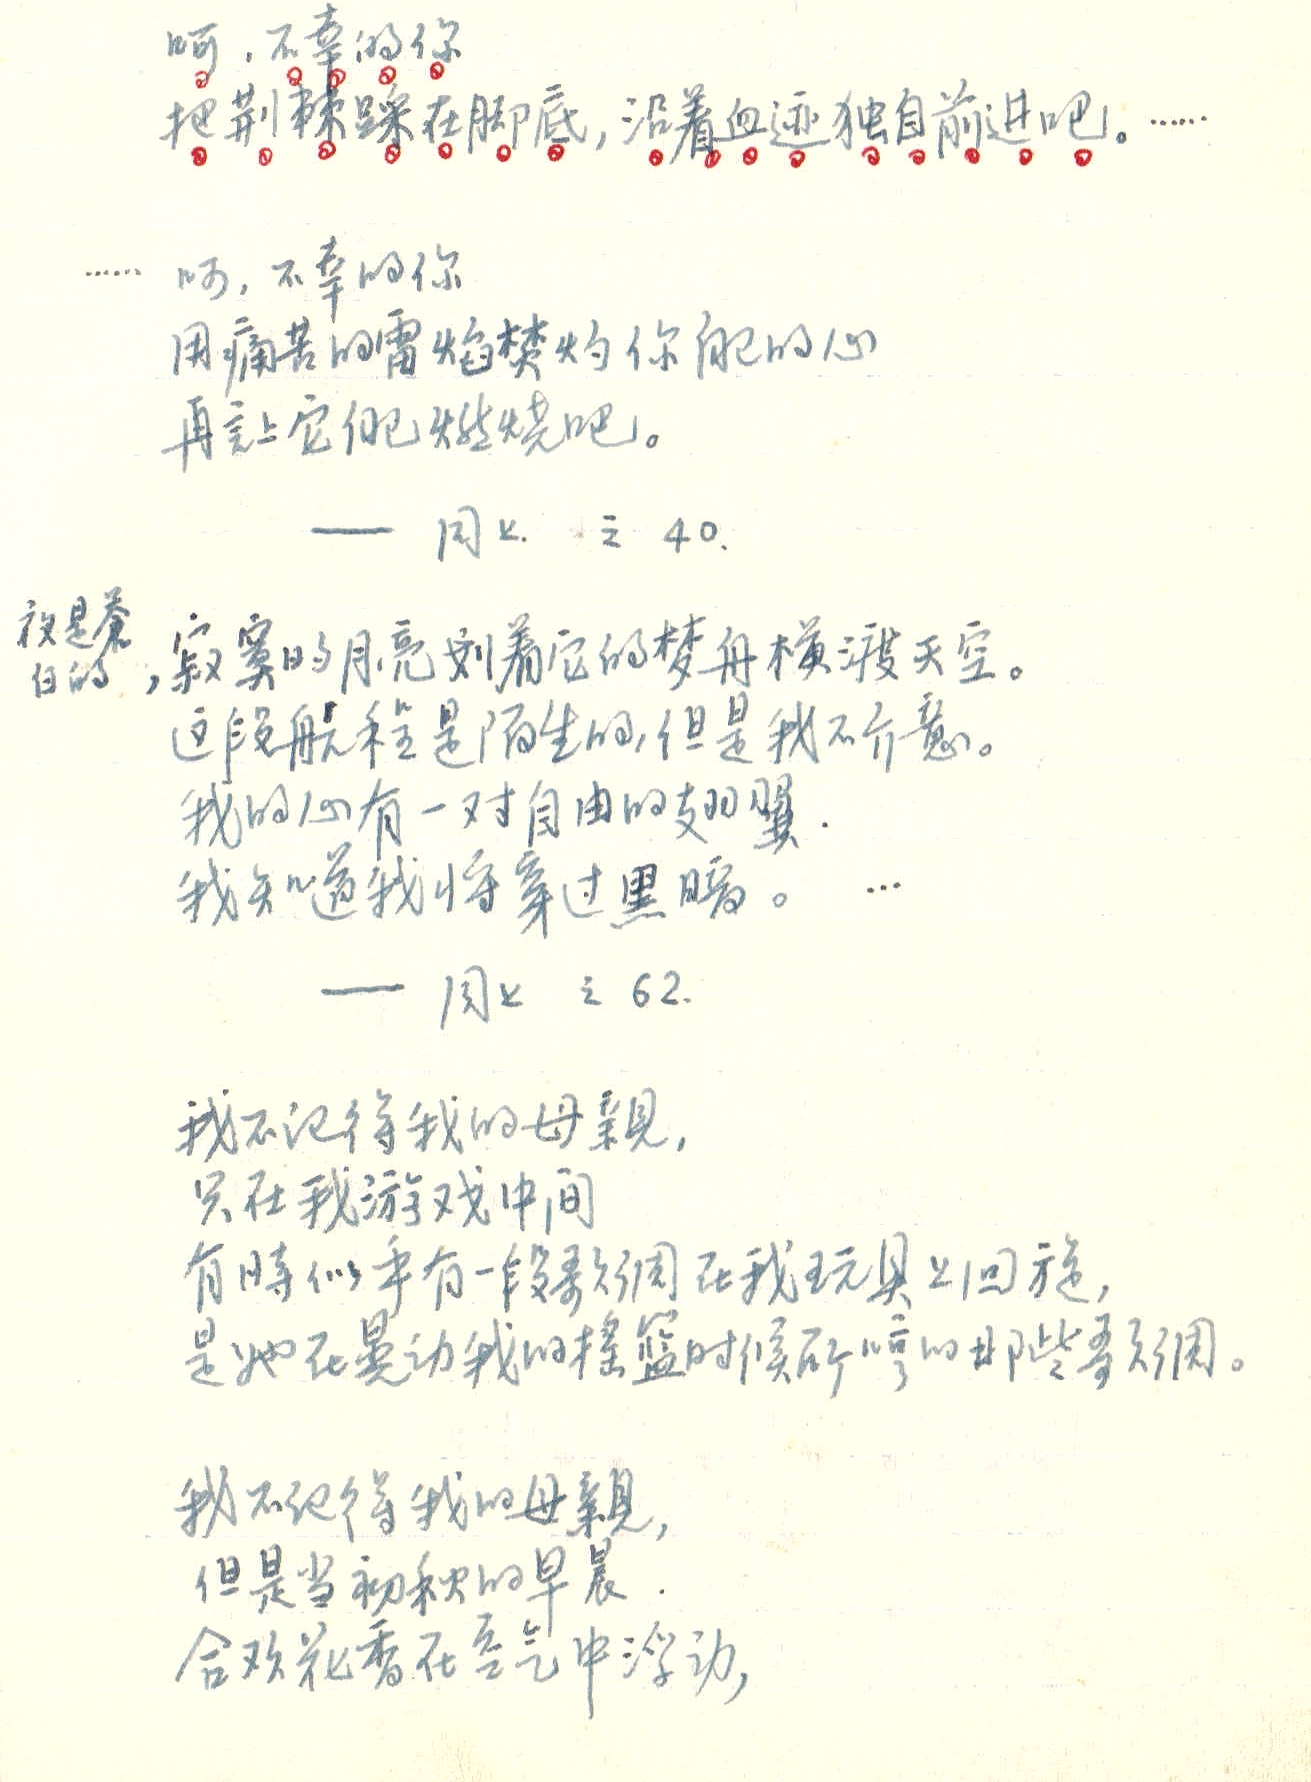 呵，不幸的你
把荆棘踩在脚底，沿着血迹独自前进吧。……
……呵，不幸的你
用痛苦的雷焰焚灼你自己的心
再让它自己燃烧吧。
—— 同上. 之 40.
夜是苍
白的，寂寞的月亮划着它的梦舟横渡天空。
这段航程是陌生的，但是我不介意。
我的心有一对自由的翅翼.
我知道我将穿过黑暗。 …
—— 同上 之 62.
我不记得我的母親，
只在我游戏中间
有時似乎有一段歌调在我玩具上回旋，
是她在晃动我的摇篮时候所哼的那些歌调。
我不记得我的母親，
但是当初秋的早晨.
合欢花香在空气中浮动，